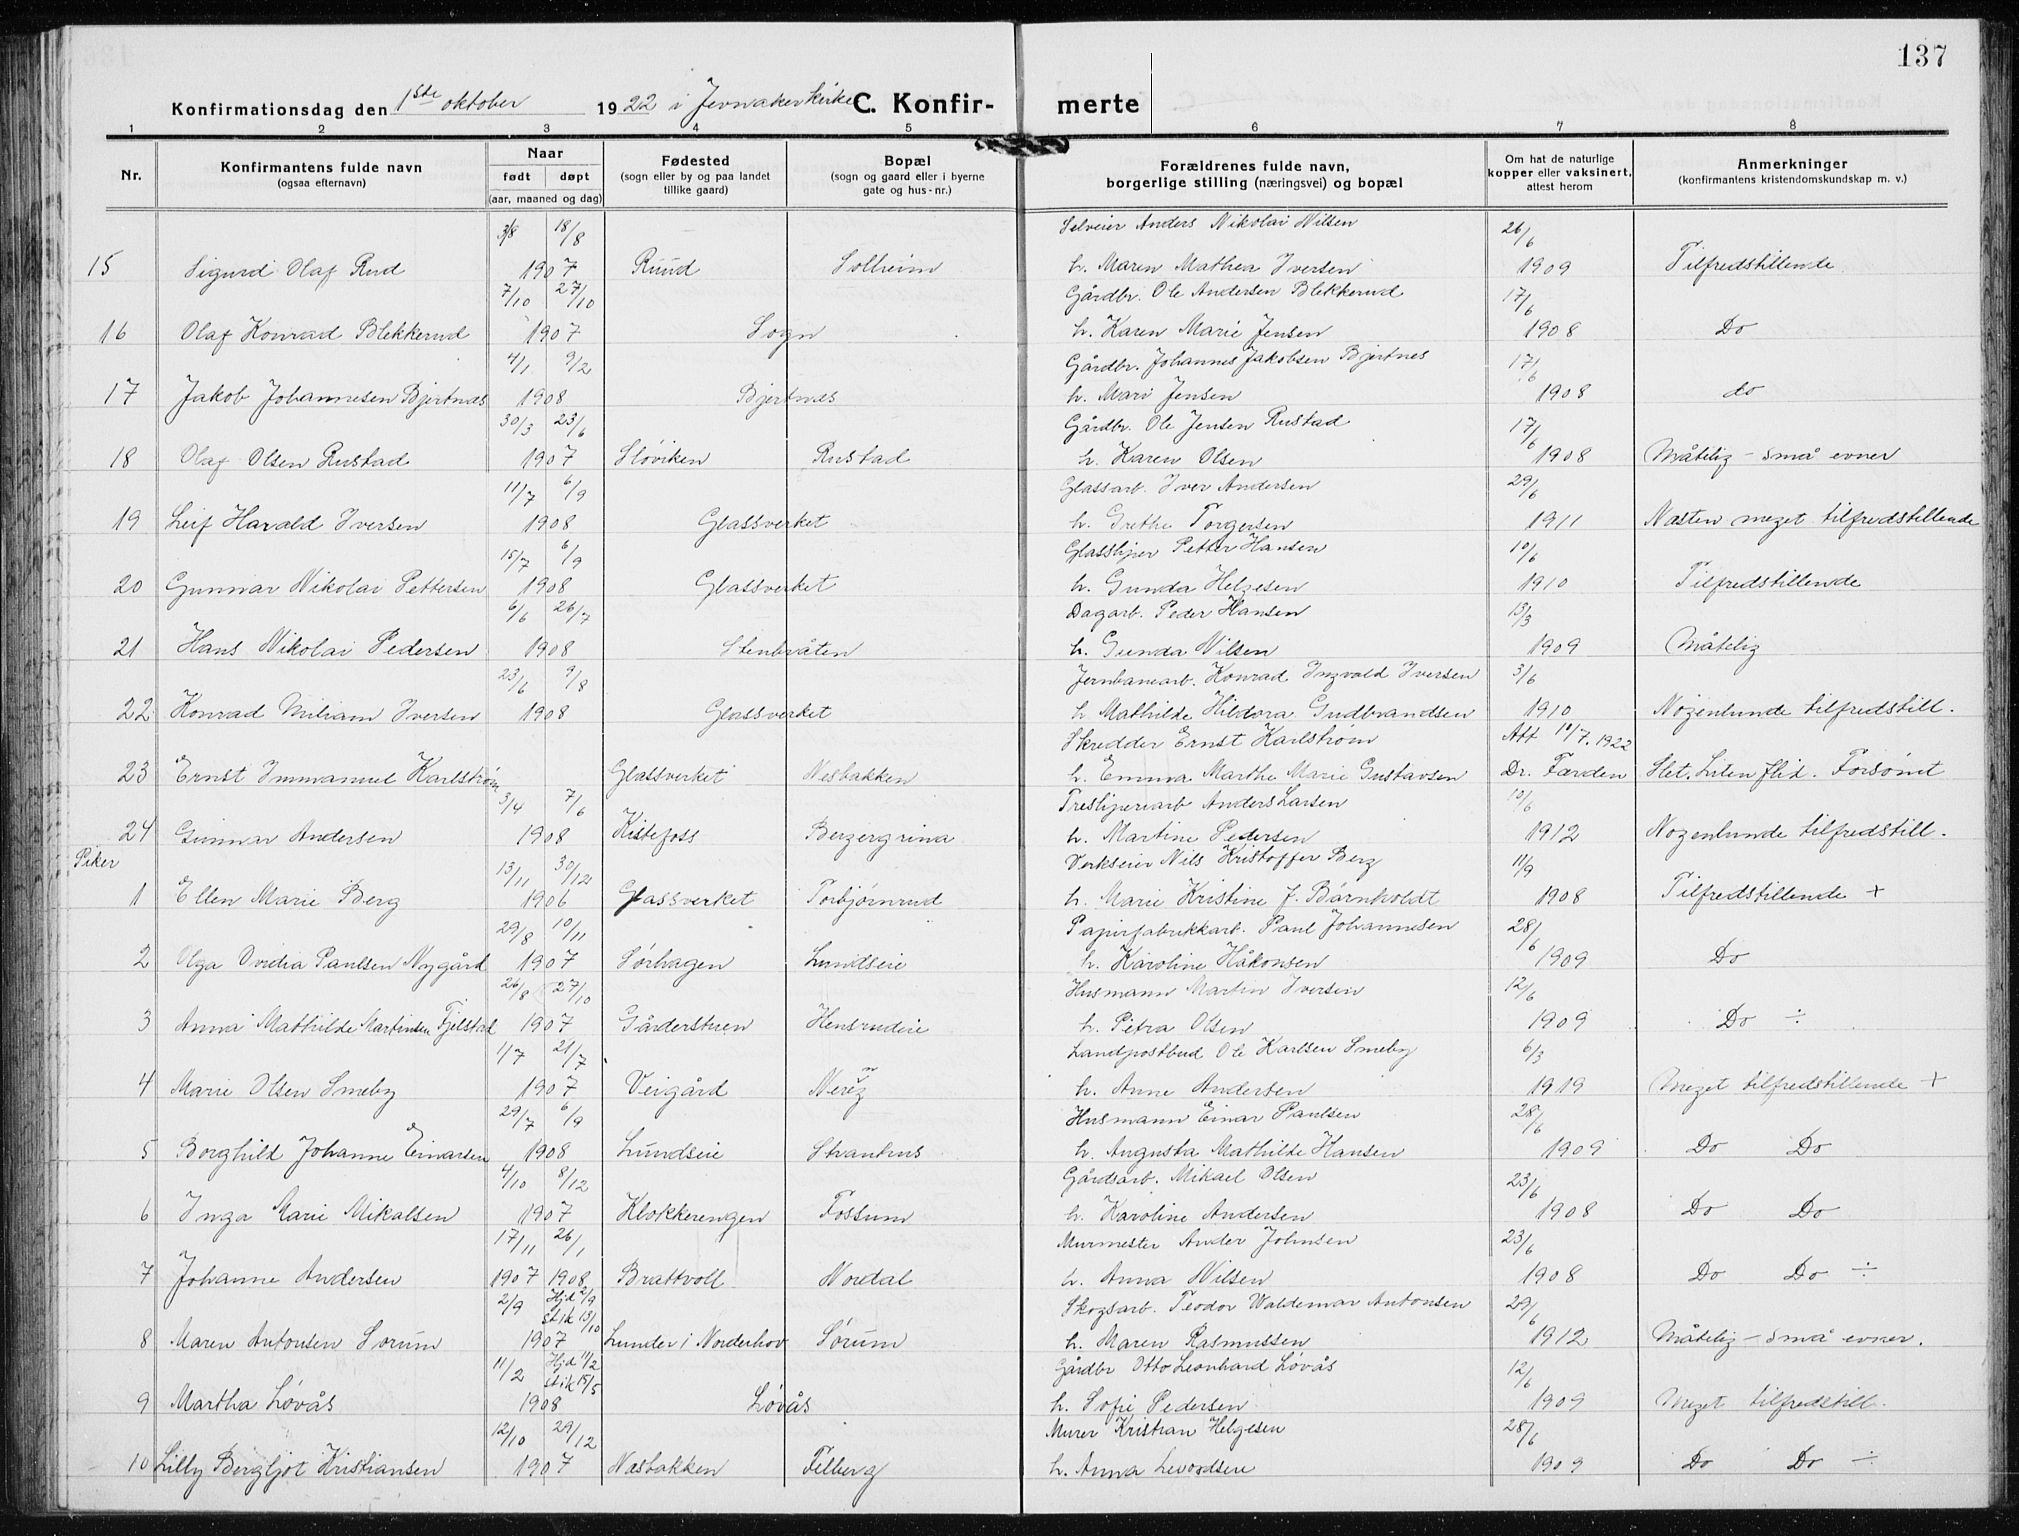 137
Konfirmationsdag den 1ste oktober 1922 i Jevnaker kirke C. Konfir- merte
1 2 3 4 5 6 7 8
Nr. Konfirmantens fulde navn (ogsaa efternavn) Naar født døpt (aar, maaned og dag) Fødested (sogn eller by og paa landet tillike gaard) Bopæl (sogn og gaard eller i byerne gate og hus-nr.) Forældrenes fulde navn, borgerlige stilling (næringsvei) og bopæl Om hat de naturlige kopper eller vaksinert, attest herom Anmerkninger (konfirmantens kristendomskundskap m. v.)
3/8 18/8 Selveier Anders Nikolai Nilsen 26/6
15 Sigurd Olaf Rud 1907 Ruud Solheim h. Maren Mathea Iversen 1909 Tilfredstillende
7/10 27/10 Gårdbr. Ole Andersen Blekkerud 17/6
16 Olaf Konrad Blekkerud 1907 Sogn h. Karen Marie Jensen 1908 Do
4/1 9/2 Gårdbr. Johannes Jakobsen Bjertnes 17/6
17 Jakob Johannesen Bjertnæs 1908 Bjertnæs h. Mari Jensen 1908 do
30/3 23/6 Gårdbr. Ole Jensen Rustad 17/6
18 Olaf Olsen Rustad 1907 Sløviken Rustad h. Karen Olsen 1908 Måtelig - små evner
11/7 6/9 Glassarb. Iver Andersen 29/6
19 Leif Harald Iversen 1908 Glassverket h. Grethe Torgersen 1911 Næsten meget tilfredstillende
15/7 6/9 Glassliper Petter Hansen 10/6
20 Gunnar Nikolai Pettersen 1908 Glassverket h. Gunda Helgesen 1910 Tilfredstillende
6/6 26/7 Dagarb. Peder Hansen 13/3
21 Hans Nikolai Pedersen 1908 Stenbråten h. Gunda Nilsen 1909 Måtelig
23/6 9/8 Jernbanearb. Konrad Ingvald Iversen 3/6
22 Konrad Miliam Iversen 1908 Glassverket h Mathilde Hildora Gudbrandsen 1910 Nogenlunde tilfredstill.
Skredder Ernst Karlstrøm Att 10/7. 1922
23 Ernst Immanuel Karlstrøm Glassverket Nesbakken h. Emma Marthe Marie Gustavsen Dr. Færden Slet. Liten flid. Forsømt
3/4 7/6 Tresliperiarb Anders Larsen 10/6
24 Gunnar Andersen 1908 Kistefoss Bergergrina h. Martine Pedersen 1912 Nogenlunde tilfredstill.
Piker
13/11 30/12 Verkseier Nils Kristoffer Berg 11/9
1 Ellen Marie Berg 1906 Glassverket Torbjørnrud h. Marie Kristine J. Børnholdt 1908 Tilfredstillende +
29/8 10/11 Papirfabrikkarb. Paul Johannesen 28/6
2 Olga Ovidia Paulsen Nygård 1907 Sørhagen Lundseie h. Karoline Håkonsen 1909 Do
26/8 27/10 Husmann Martin Iversen 12/6
3 Anna Mathilde Martinsen Fjelstad 1907 Gårderstuen Hensrudeie h. Petra Olsen 1909 Do ÷
1/7 21/7 Landpostbud Ole Karlsen Smeby 6/3
4 Marie Olsen Smeby 1907 Veigård h. Anne Andersen 1919 Meget tilfredstillende +
29/7 6/9 Husmann Einar Paulsen 28/6
5 Borghild Johanne Einarsen 1908 Lundseie h. Augusta Mathilde Hansen 1909 Do Do
4/10 8/12 Gårdsarb. Mikael Olsen 23/6
6 Inga Marie Mikalsen 1907 Klokkerengen Fossum h. Karoline Andersen 1908 Do Do
17/11 26/1 Murmester Ander Johnsen 23/6
7 Johanne Andersen 1907 1908 Brattvoll Nordal h. Anna Nilsen 1908 Do Do ÷
2/9 Hjd 2/9 stik 13/10 Skogsarb. Teodor Waldemar Antonsen 29/6
8 Maren Antonsen Sorum 1907 Lunder i Norderhov Sørum h. Maren Rasmussen 1912 Måtelig - små evner.
11/2 Hjd 11/2 stik 15/5 Gårdbr Otto Leonhard Løvås 12/6
9 Martha Løvås 1908 Løvås h. Sofie Pedersen 1909 Meget tilfredstill.
12/10 29/12 Murer Kristian Helgesen 28/6
10 Lilly Bergljot Kristiansen 1907 Næsbakken h. Anna 1909 Do Do ÷